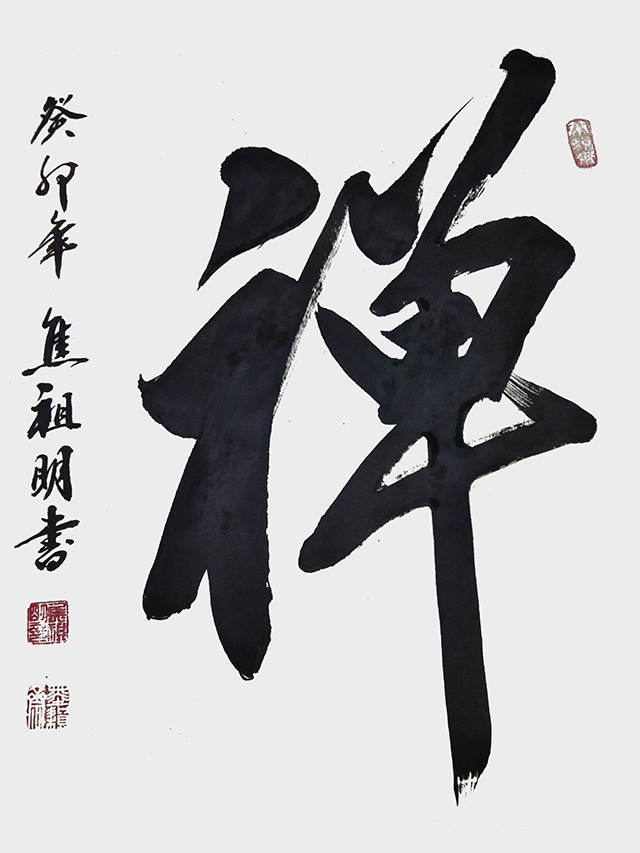 禅
癸卯年 焦祖明书